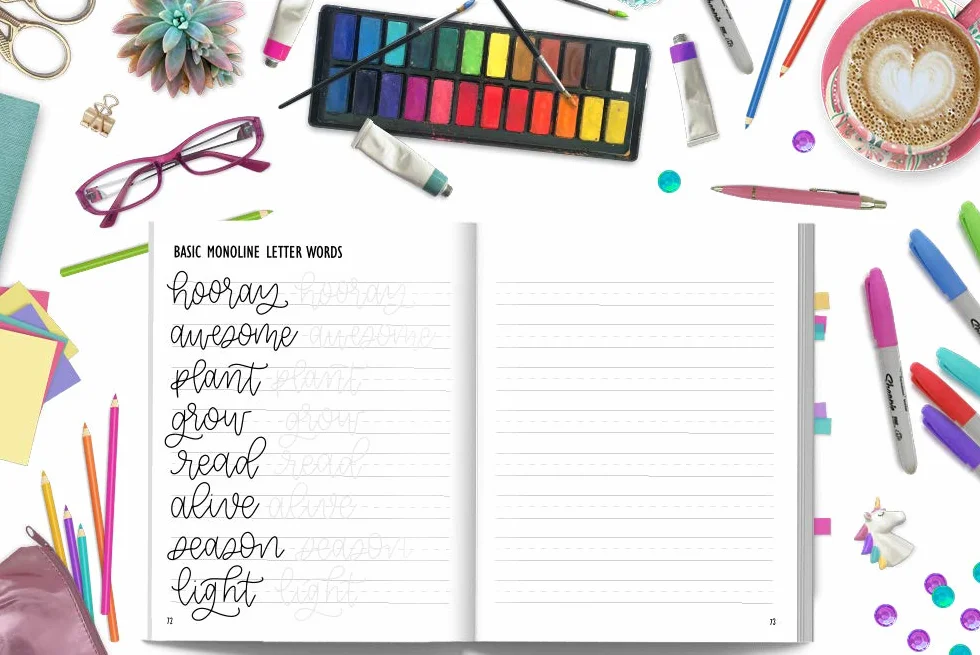 BASIC MONOLINE LETTER WORDS
hooray hooray
awesome awesome
plant plant
grow grow
read read
alive alive
season season
light light
72
73
Sharpie